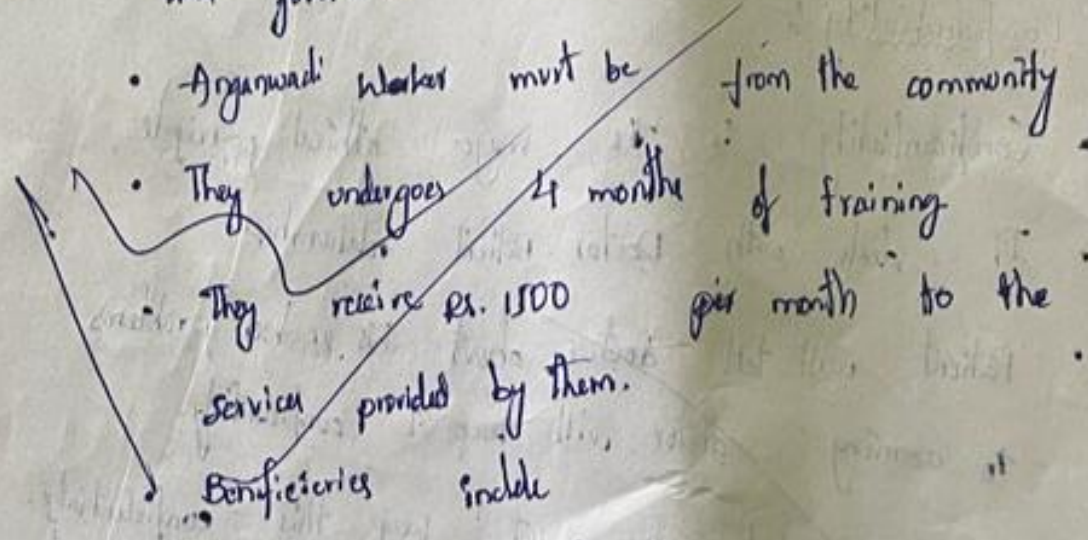 • Anganwadi Worker must be from the community
• They undergoes 4 months of training
• They receive Rs. 1500 per month to the
services provided by them.
• Beneficieries include